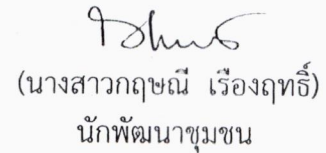 (นางสาวกฤษณี เรืองฤทธิ์)
นักพัฒนาชุมชน